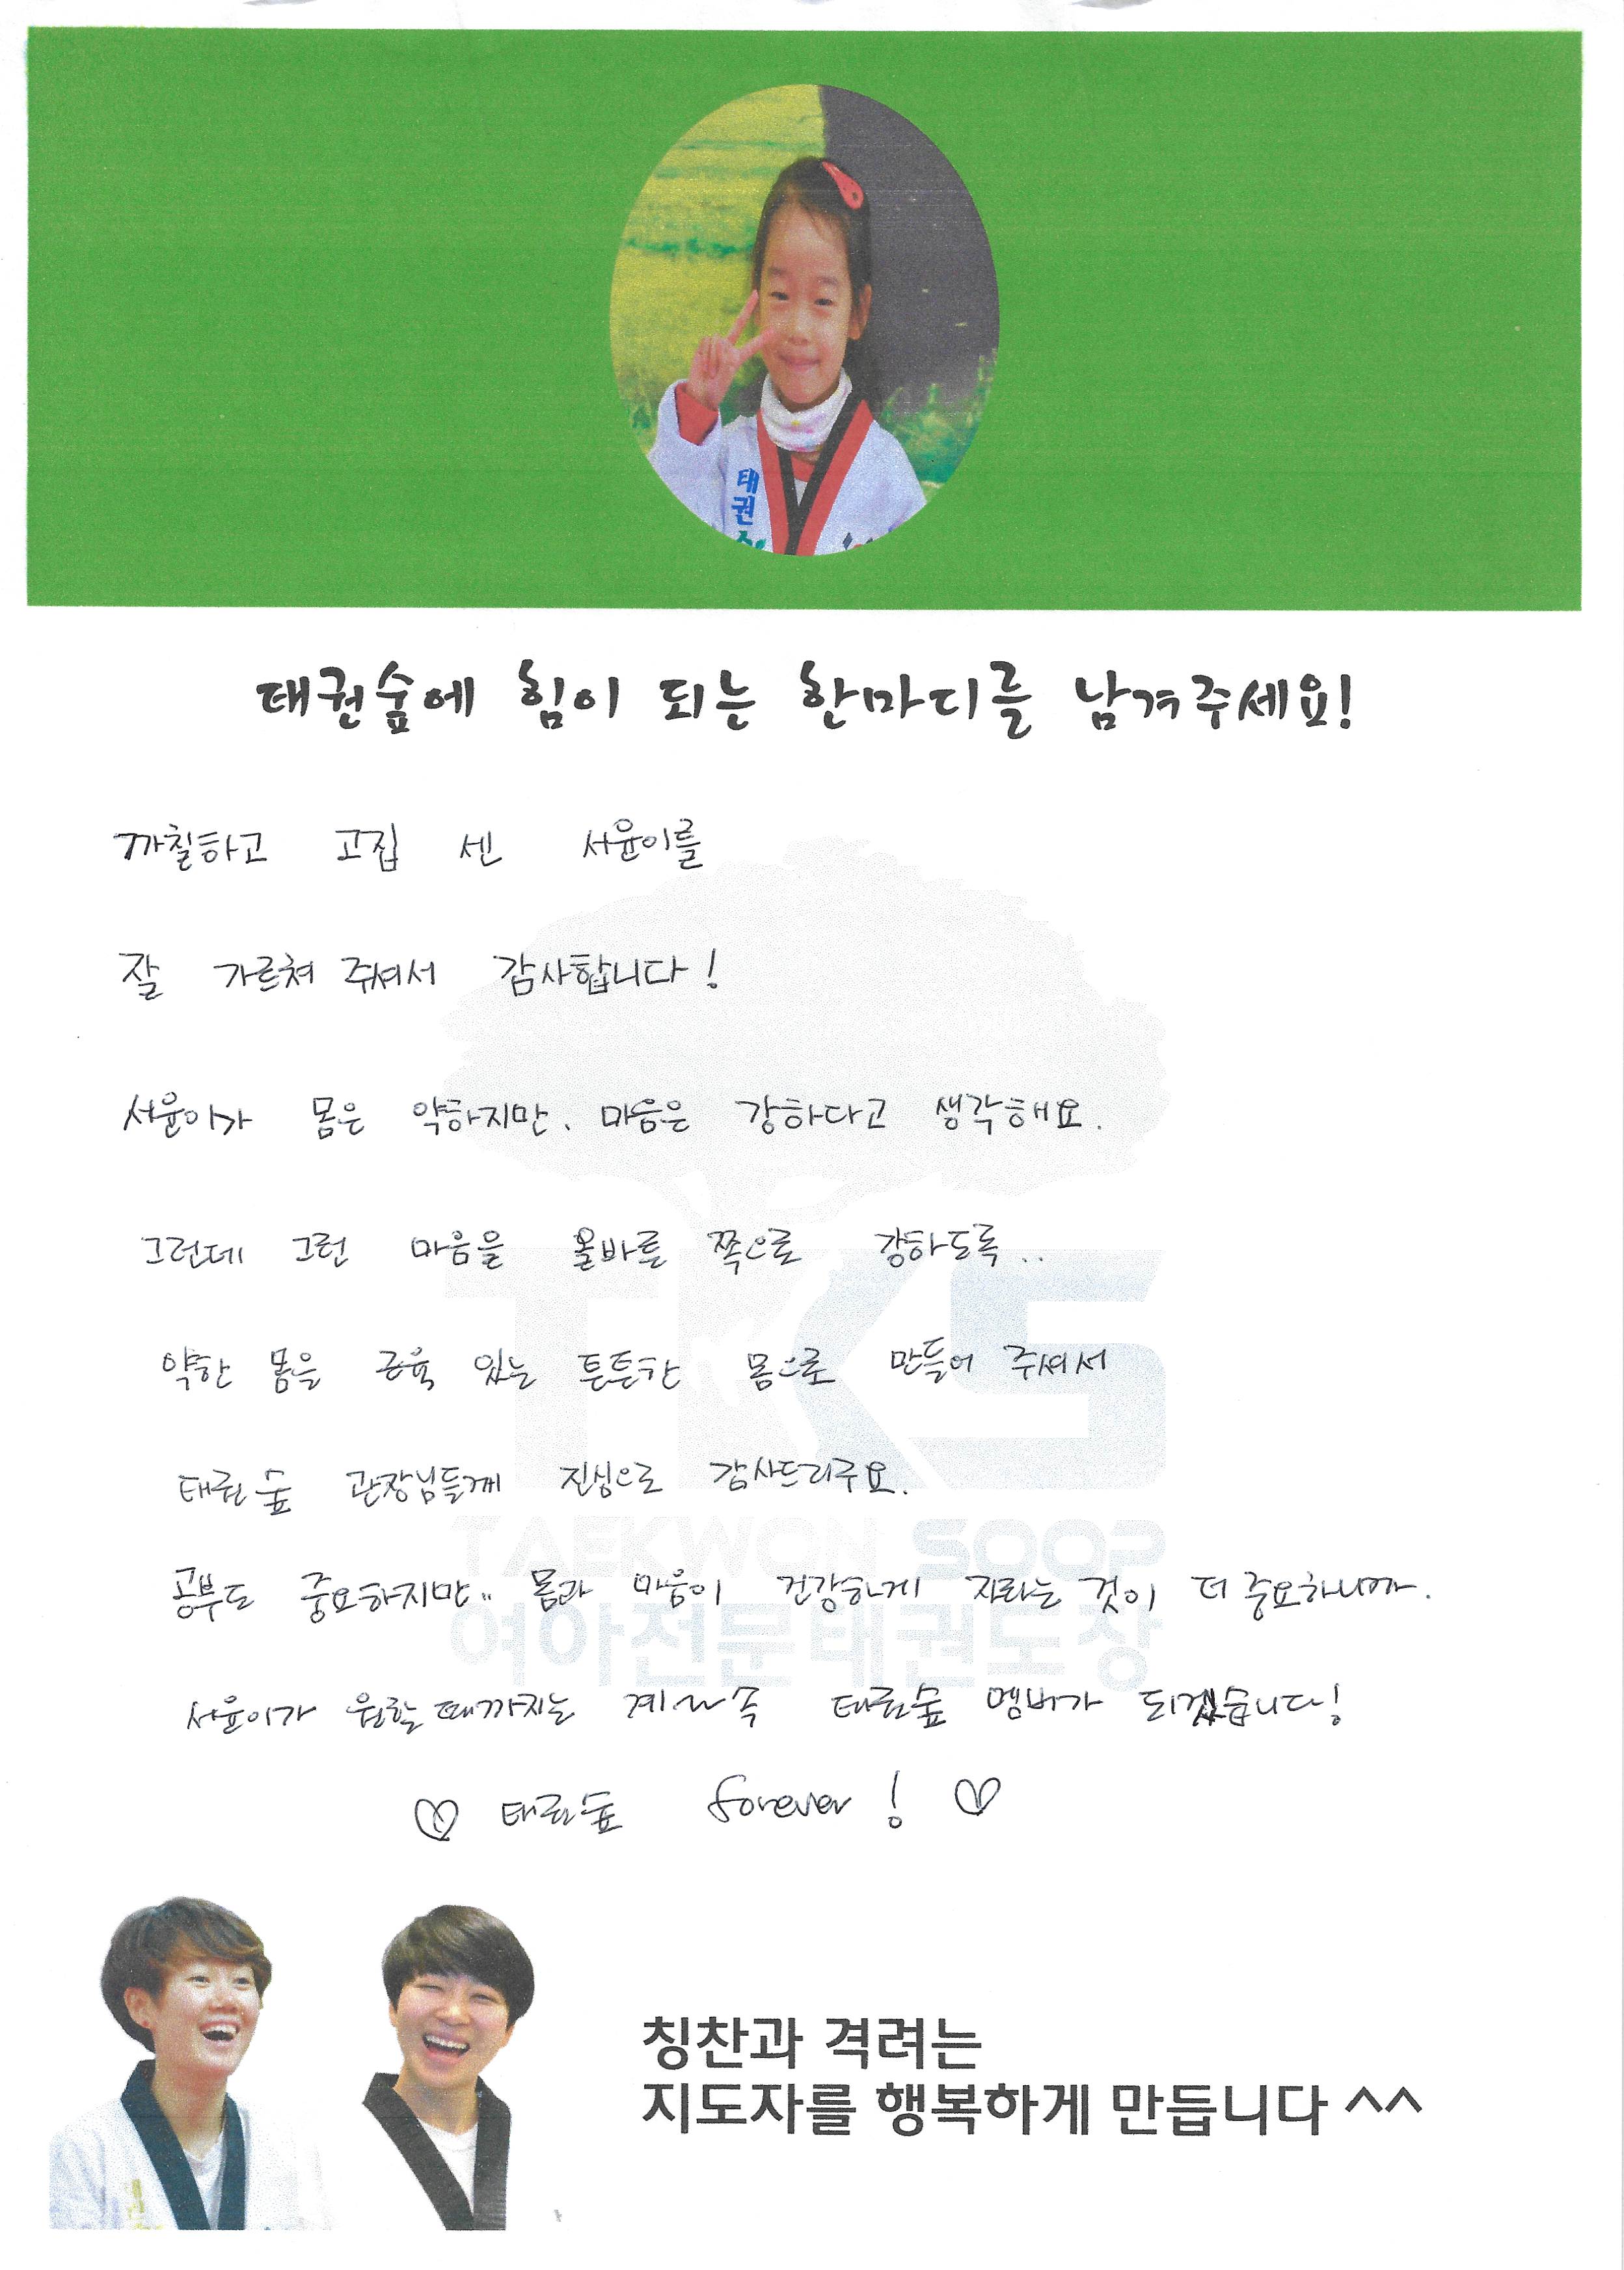 태권
태권숲에 힘이 되는 한마디를 남겨주세요!
까칠하고 고집 센 서윤이를
잘 가르쳐 주셔서 감사합니다!
서윤이가 몸은 약하지만, 마음은 강하다고 생각해요.
그런데 그런 마음을 올바른 쪽으로 강하도록..
약한 몸을 근육 있는 튼튼한 몸으로 만들어 주셔서
태권숲 관장님들께 진심으로 감사드리구요.
공부도 중요하지만.. 몸과 마음이 건강하게 자라는 것이 더 중요하니까.
서윤이가 원할 때까지는 계~속 태권숲 멤버가 되겠습니다!
♡ 태권숲 forever! ♡
TKS
TAEKWON SOOP
여아전문태권도장
칭찬과 격려는
지도자를 행복하게 만듭니다 ^^